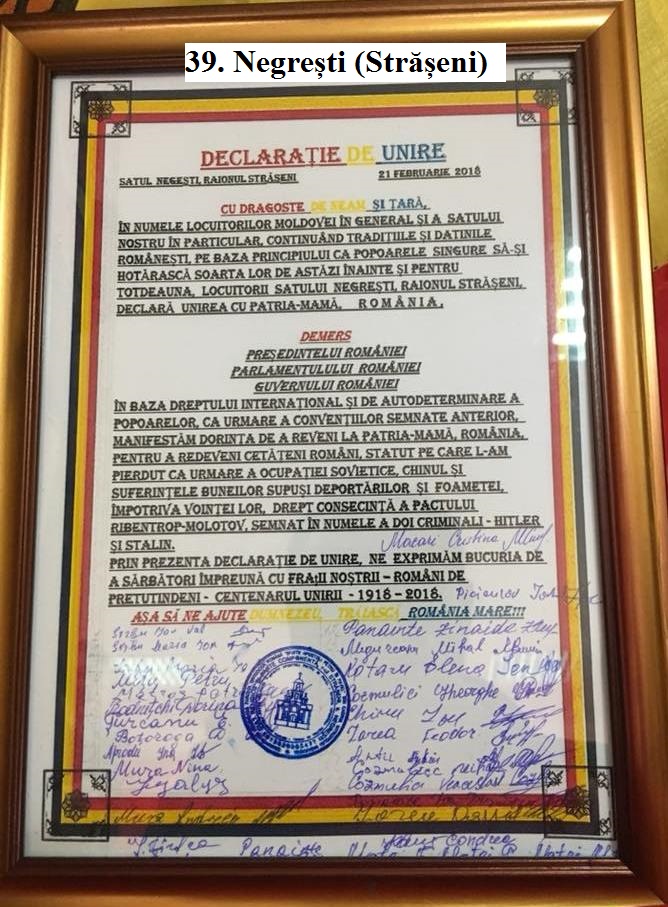 39. Negrești (Strășeni)
DECLARAȚIE DE UNIRE
SATUL NEGEȘTI, RAIONUL STRĂȘENI 21 FEBRUARIE 2018
CU DRAGOSTE DE NEAM ȘI ȚARĂ,
ÎN NUMELE LOCUITORILOR MOLDOVEI ÎN GENERAL ȘI A SATULUI
NOSTRU ÎN PARTICULAR, CONTINUÂND TRADIȚIILE ȘI DATINILE
ROMÂNEȘTI, PE BAZA PRINCIPIULUI CA POPOARELE SINGURE SĂ-ȘI
HOTĂRASCĂ SOARTA LOR DE ASTĂZI ÎNAINTE ȘI PENTRU
TOTDEAUNA, LOCUITORII SATULUI NEGREȘTI, RAIONUL STRĂȘENI,
DECLARĂ UNIREA CU PATRIA-MAMĂ, ROMÂNIA.
DEMERS
PREȘEDINTELUI ROMÂNIEI
PARLAMENTULULUI ROMÂNIEI
GUVERNULUI ROMÂNIEI
ÎN BAZA DREPTULUI INTERNAȚIONAL ȘI DE AUTODETERMINARE A
POPOARELOR, CA URMARE A CONVENȚIILOR SEMNATE ANTERIOR,
MANIFESTĂM DORINȚA DE A REVENI LA PATRIA-MAMĂ, ROMÂNIA,
PENTRU A REDEVENI CETĂȚENI ROMÂNI, STATUT PE CARE L-AM
PIERDUT CA URMARE A OCUPAȚIEI SOVIETICE, CHINUL ȘI
SUFERINȚELE BUNEILOR SUPUȘI DEPORTĂRILOR ȘI FOAMETEI,
ÎMPOTRIVA VOINȚEI LOR, DREPT CONSECINȚĂ A PACTULUI
RIBENTROP-MOLOTOV, SEMNAT ÎN NUMELE A DOI CRIMINALI - HITLER
ȘI STALIN. Macari Cristina
PRIN PREZENTA DECLARAȚIE DE UNIRE, NE EXPRIMĂM BUCURIA DE
A SĂRBĂTORI ÎMPREUNĂ CU FRAȚII NOȘTRII – ROMÂNI DE
PRETUTINDENI - CENTENARUL UNIRII - 1918 - 2018.
AȘA SĂ NE AJUTE DUMNEZEU, TRĂIASCĂ ROMÂNIA MARE!!!
Panainte Zinaida
Mihai
Rotaru Elena
Petru
Gheorghe
Chiru Ion
Țurcanu E.
Bozoroga
Feodor
Mura Nina
Panainte
Condrea